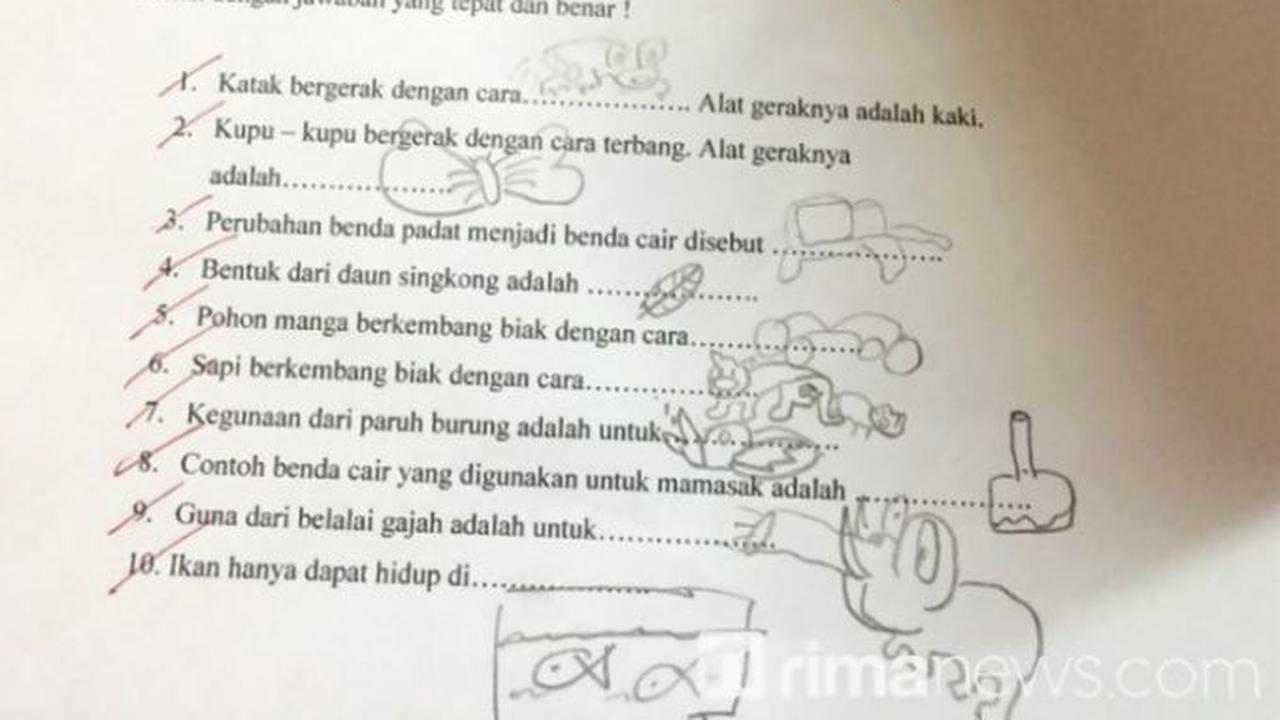 yang tepat dan benar !
1. Katak bergerak dengan cara.................. Alat geraknya adalah kaki.
2. Kupu – kupu bergerak dengan cara terbang. Alat geraknya
adalah..................
3. Perubahan benda padat menjadi benda cair disebut ..................
4. Bentuk dari daun singkong adalah ..................
5. Pohon manga berkembang biak dengan cara..................
6. Sapi berkembang biak dengan cara..................
7. Kegunaan dari paruh burung adalah untuk..................
8. Contoh benda cair yang digunakan untuk mamasak adalah ..................
9. Guna dari belalai gajah adalah untuk..................
10. Ikan hanya dapat hidup di..................
rimanews.com